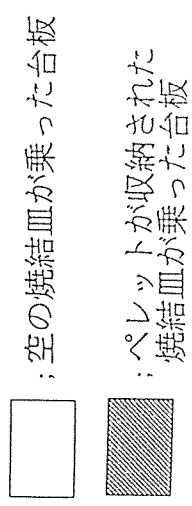 ；空の焼結皿が乗った台板
；ペレットが収納された
焼結皿が乗った台板